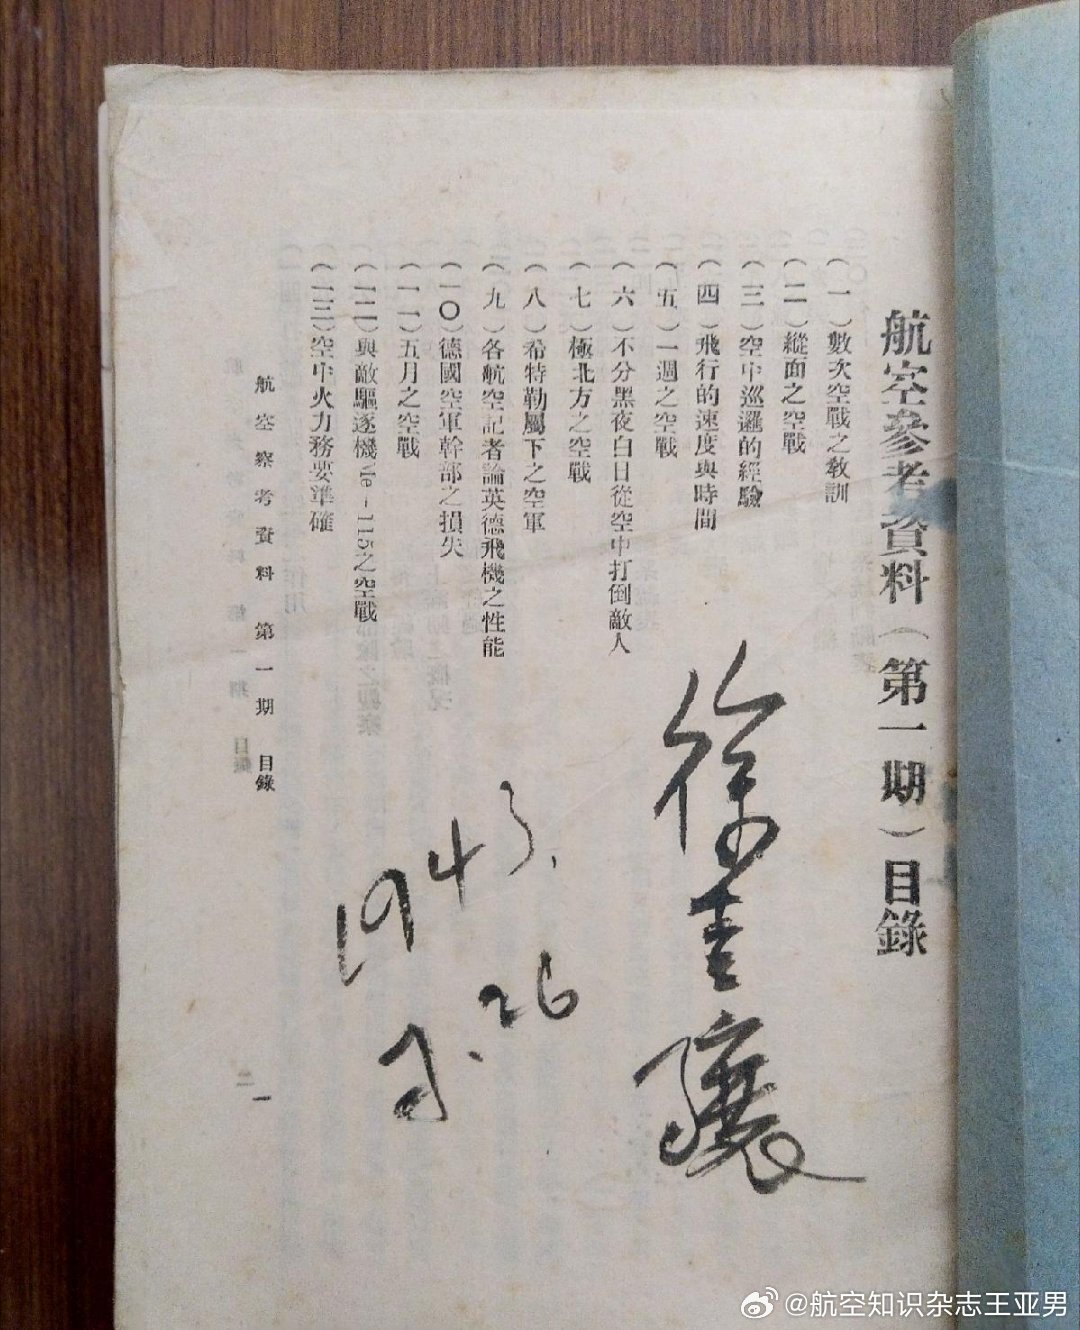 航空參考資料（第一期）目錄
（一）數次空戰之教訓
（二）縱面之空戰
（三）空中巡邏的經驗
（四）飛行的速度與時間
（五）一週之空戰
（六）不分黑夜白日從空中打倒敵人
（七）極北方之空戰
（八）希特勒屬下之空軍
（九）各航空記者論英德飛機之性能
（一〇）德國空軍幹部之損失
（一一）五月之空戰
（一二）與敵驅逐機Me-115之空戰
（一三）空中火力務要準確
航空察考資料 第一期 目錄
一
徐吉驤
1943.
26
@航空知识杂志王亚男